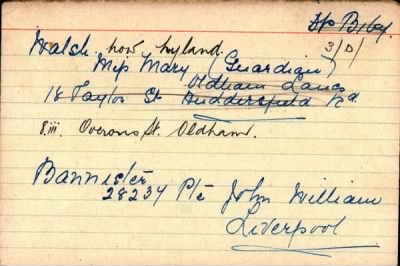 3/D/
Walsh now Hyland.
Miss Mary (Guardian)
Oldham Lancs
18 Taylor St Huddersfield Rd
8.iii. Overens St. Oldham.
Bannister
28234 Pte John William
Liverpool